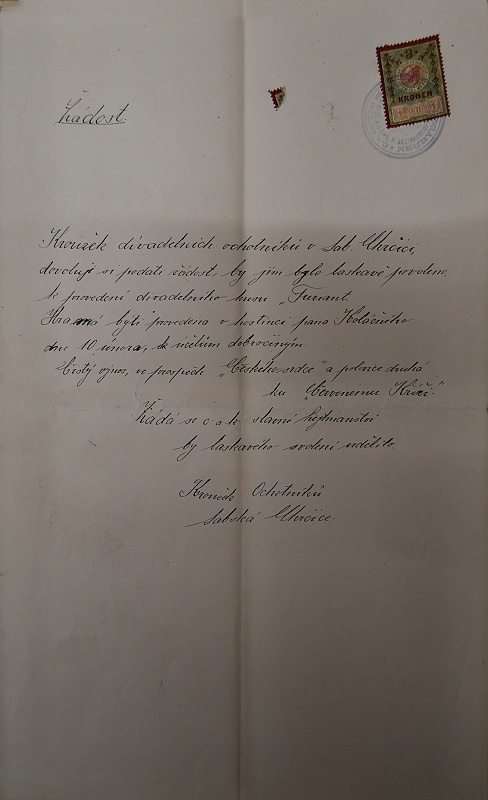 3
KRONEN
Žádost.
Kroužek divadelních ochotníků v Lab. Chrčici,
dovoluje si podati žádost, by jim bylo laskavě povoleno,
k provedení divadelního kusu „Furiant.
Hra má býti provedena v hostinci pana Koláčného
dne 10 února, k účelům dobročinným
Čistý výnos, ve prospěch „Českého srdce" a polovice druhá
ku „Červenému Kříži."
Žádá se c. a k. slavné hejtmanství
by laskavého svolení udělilo.
Kroužek Ochotníků
Labská Chrčice.